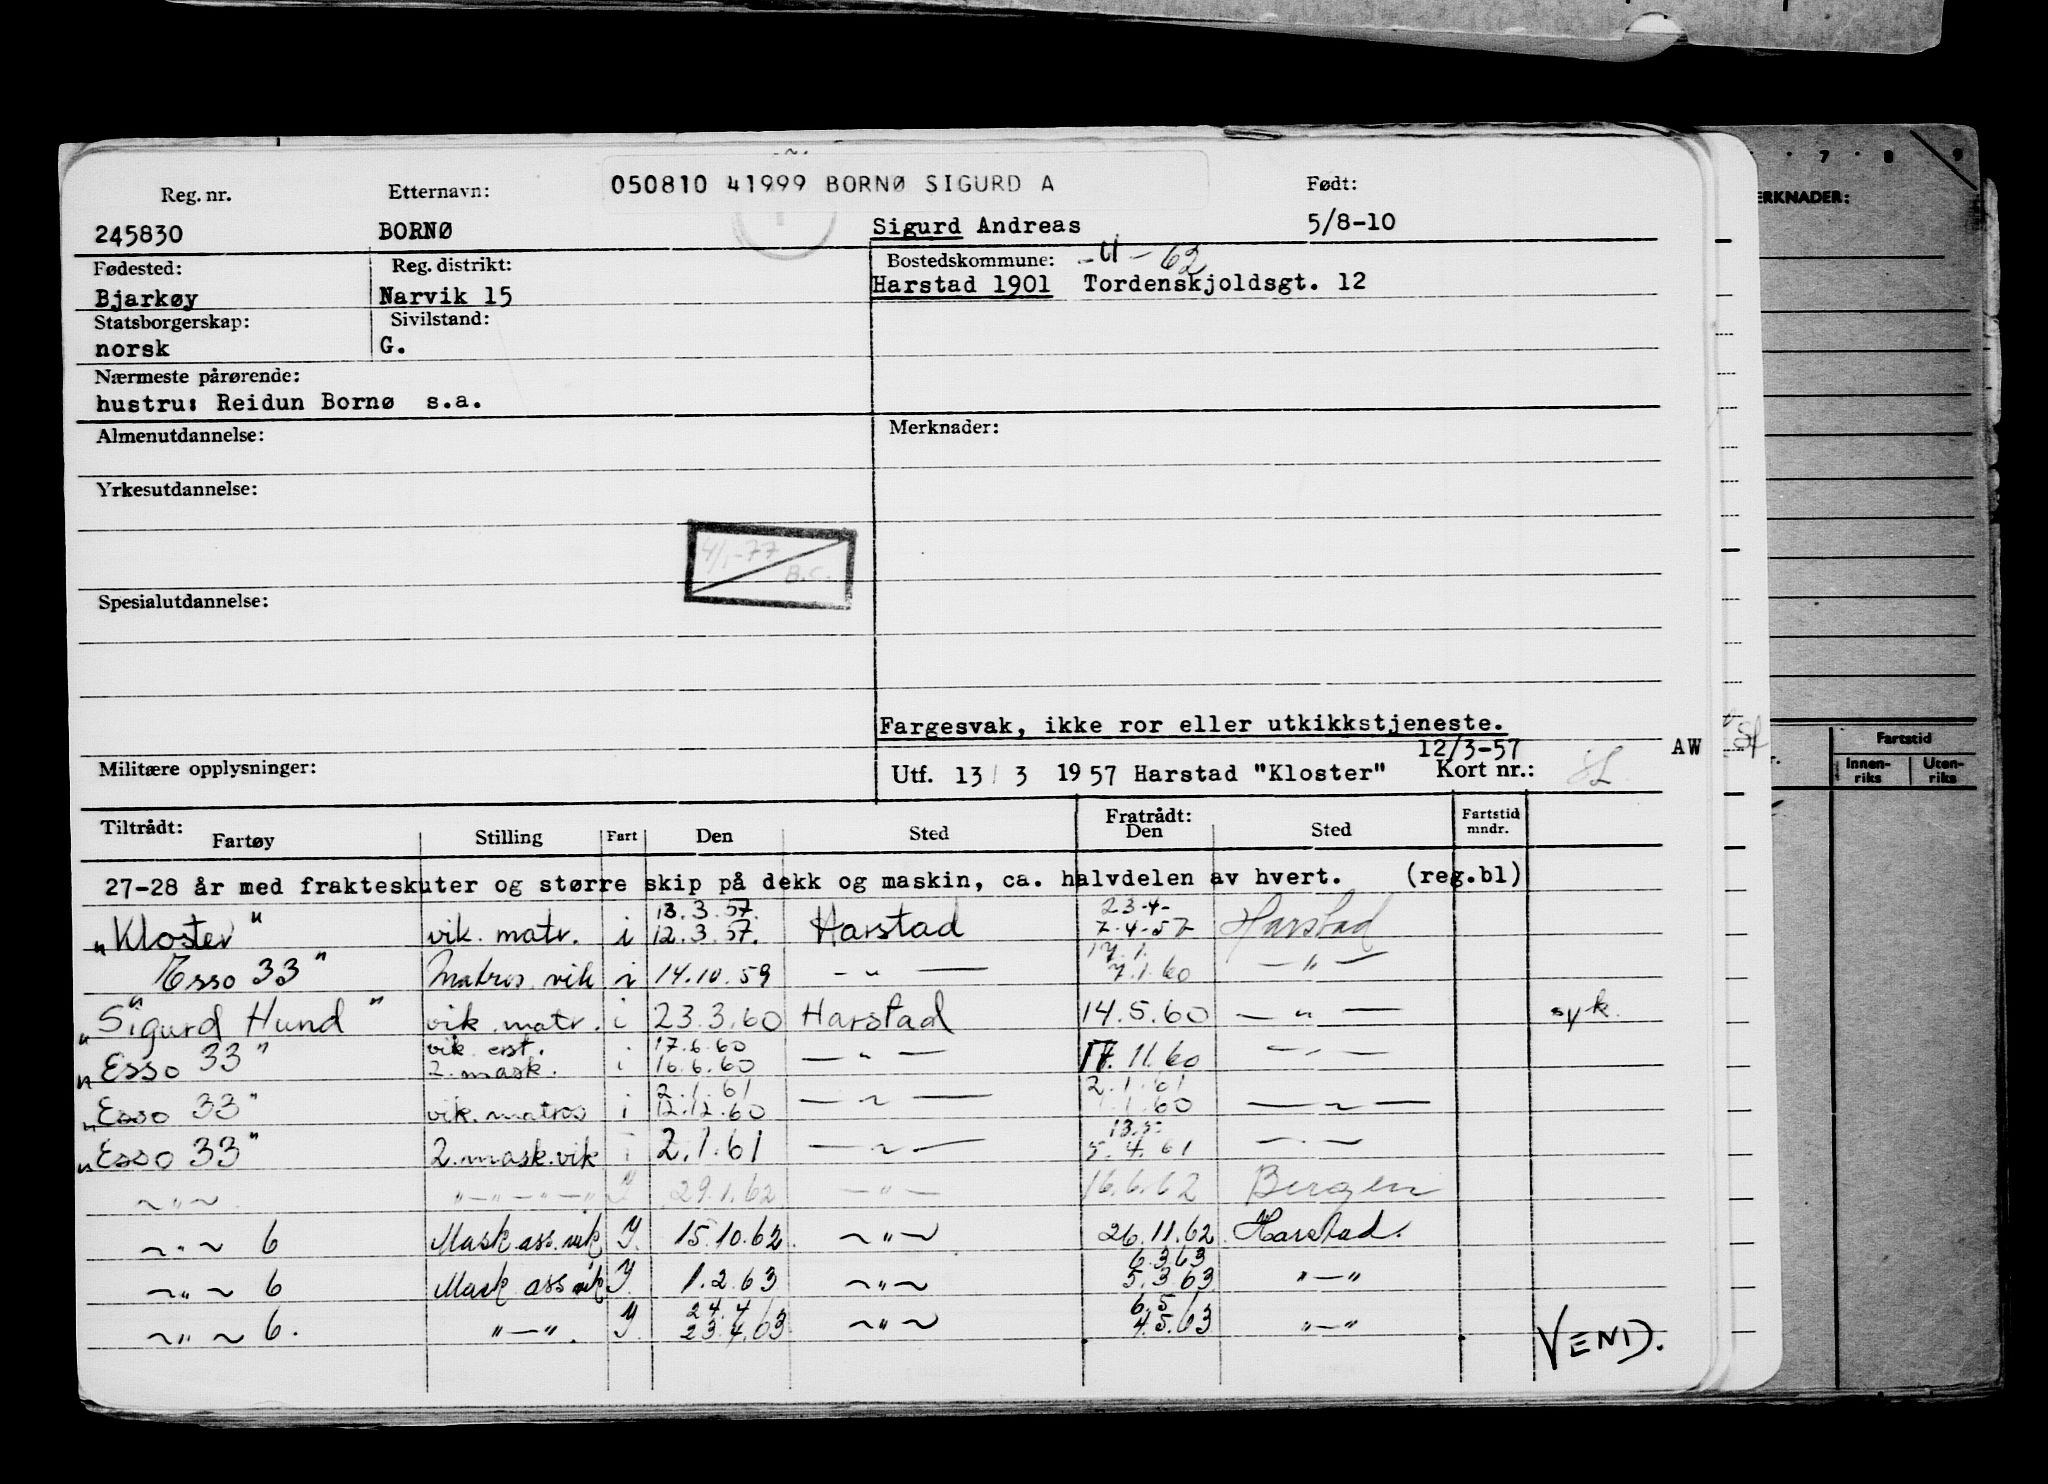 050810 41999 BORNØ SIGURD A
Reg. nr. Etternavn: Født:
245830 BORNØ Sigurd Andreas 5/8-10
Fødested: Reg. distrikt: Bostedskommune: - 4 - 62
Bjarkøy Narvik 15 Harstad 1901 Tordenskjoldsgt. 12
Statsborgerskap: Sivilstand:
norsk G.
Nærmeste pårørende:
hustru: Reidun Bornø s.a.
Almenutdannelse: Merknader:
Yrkesutdannelse:
4/1-77
B.C.
Spesialutdannelse:
Fargesvak, ikke ror eller utkikkstjeneste.
12/3-57 AW
Militære opplysninger: Utf. 13/3 1957 Harstad "Kloster" Kort nr.:
Tiltrådt: Fratrådt: Fartstid
Fartøy Stilling Fart Den Sted Den Sted mndr.
27-28 år med frakteskuter og større skip på dekk og maskin, ca. halvdelen av hvert. (reg.bl)
13.3.57. 23-4-
"Kloster" vik. matr. i 12.3.57. Harstad 7-4-57 Harstad
17.1.
Esso 33" Matros vik i 14.10.59 - " - 7.1.60 - " -
"Sigurd Hund" vik. matr. i 23.3.60 Harstad 14.5.60 - " - syk.
vik. erst. 17.6.60
"Esso 33" 2. mask. i 16.6.60 - " - 17.11.60 - " -
2.1.61 2.1.61
"Esso 33" vik. matros i 12.12.60 - " - 1.1.60 - " -
13.5
"Esso 33" 2. mask. vik i 2.1.61 - " - 5.4.61 - " -
- " - " - " - " 29.1.62 - " - 16.6.62 Bergen
- " - 6 Mask. ass. vik Y. 15.10.62. - " - 26.11.62 Harstad.
6.3.63
- " - 6 Mask ass vik Y. 1.2.63 - " - 5.3.63 " - "
24.4 6.5
- " - 6. " - ". Y. 23.4.63 - " - 4.5.63 " - "
VEND.
7 8 9
MERKNADER:
Fartstid
Innenriks Utenriks